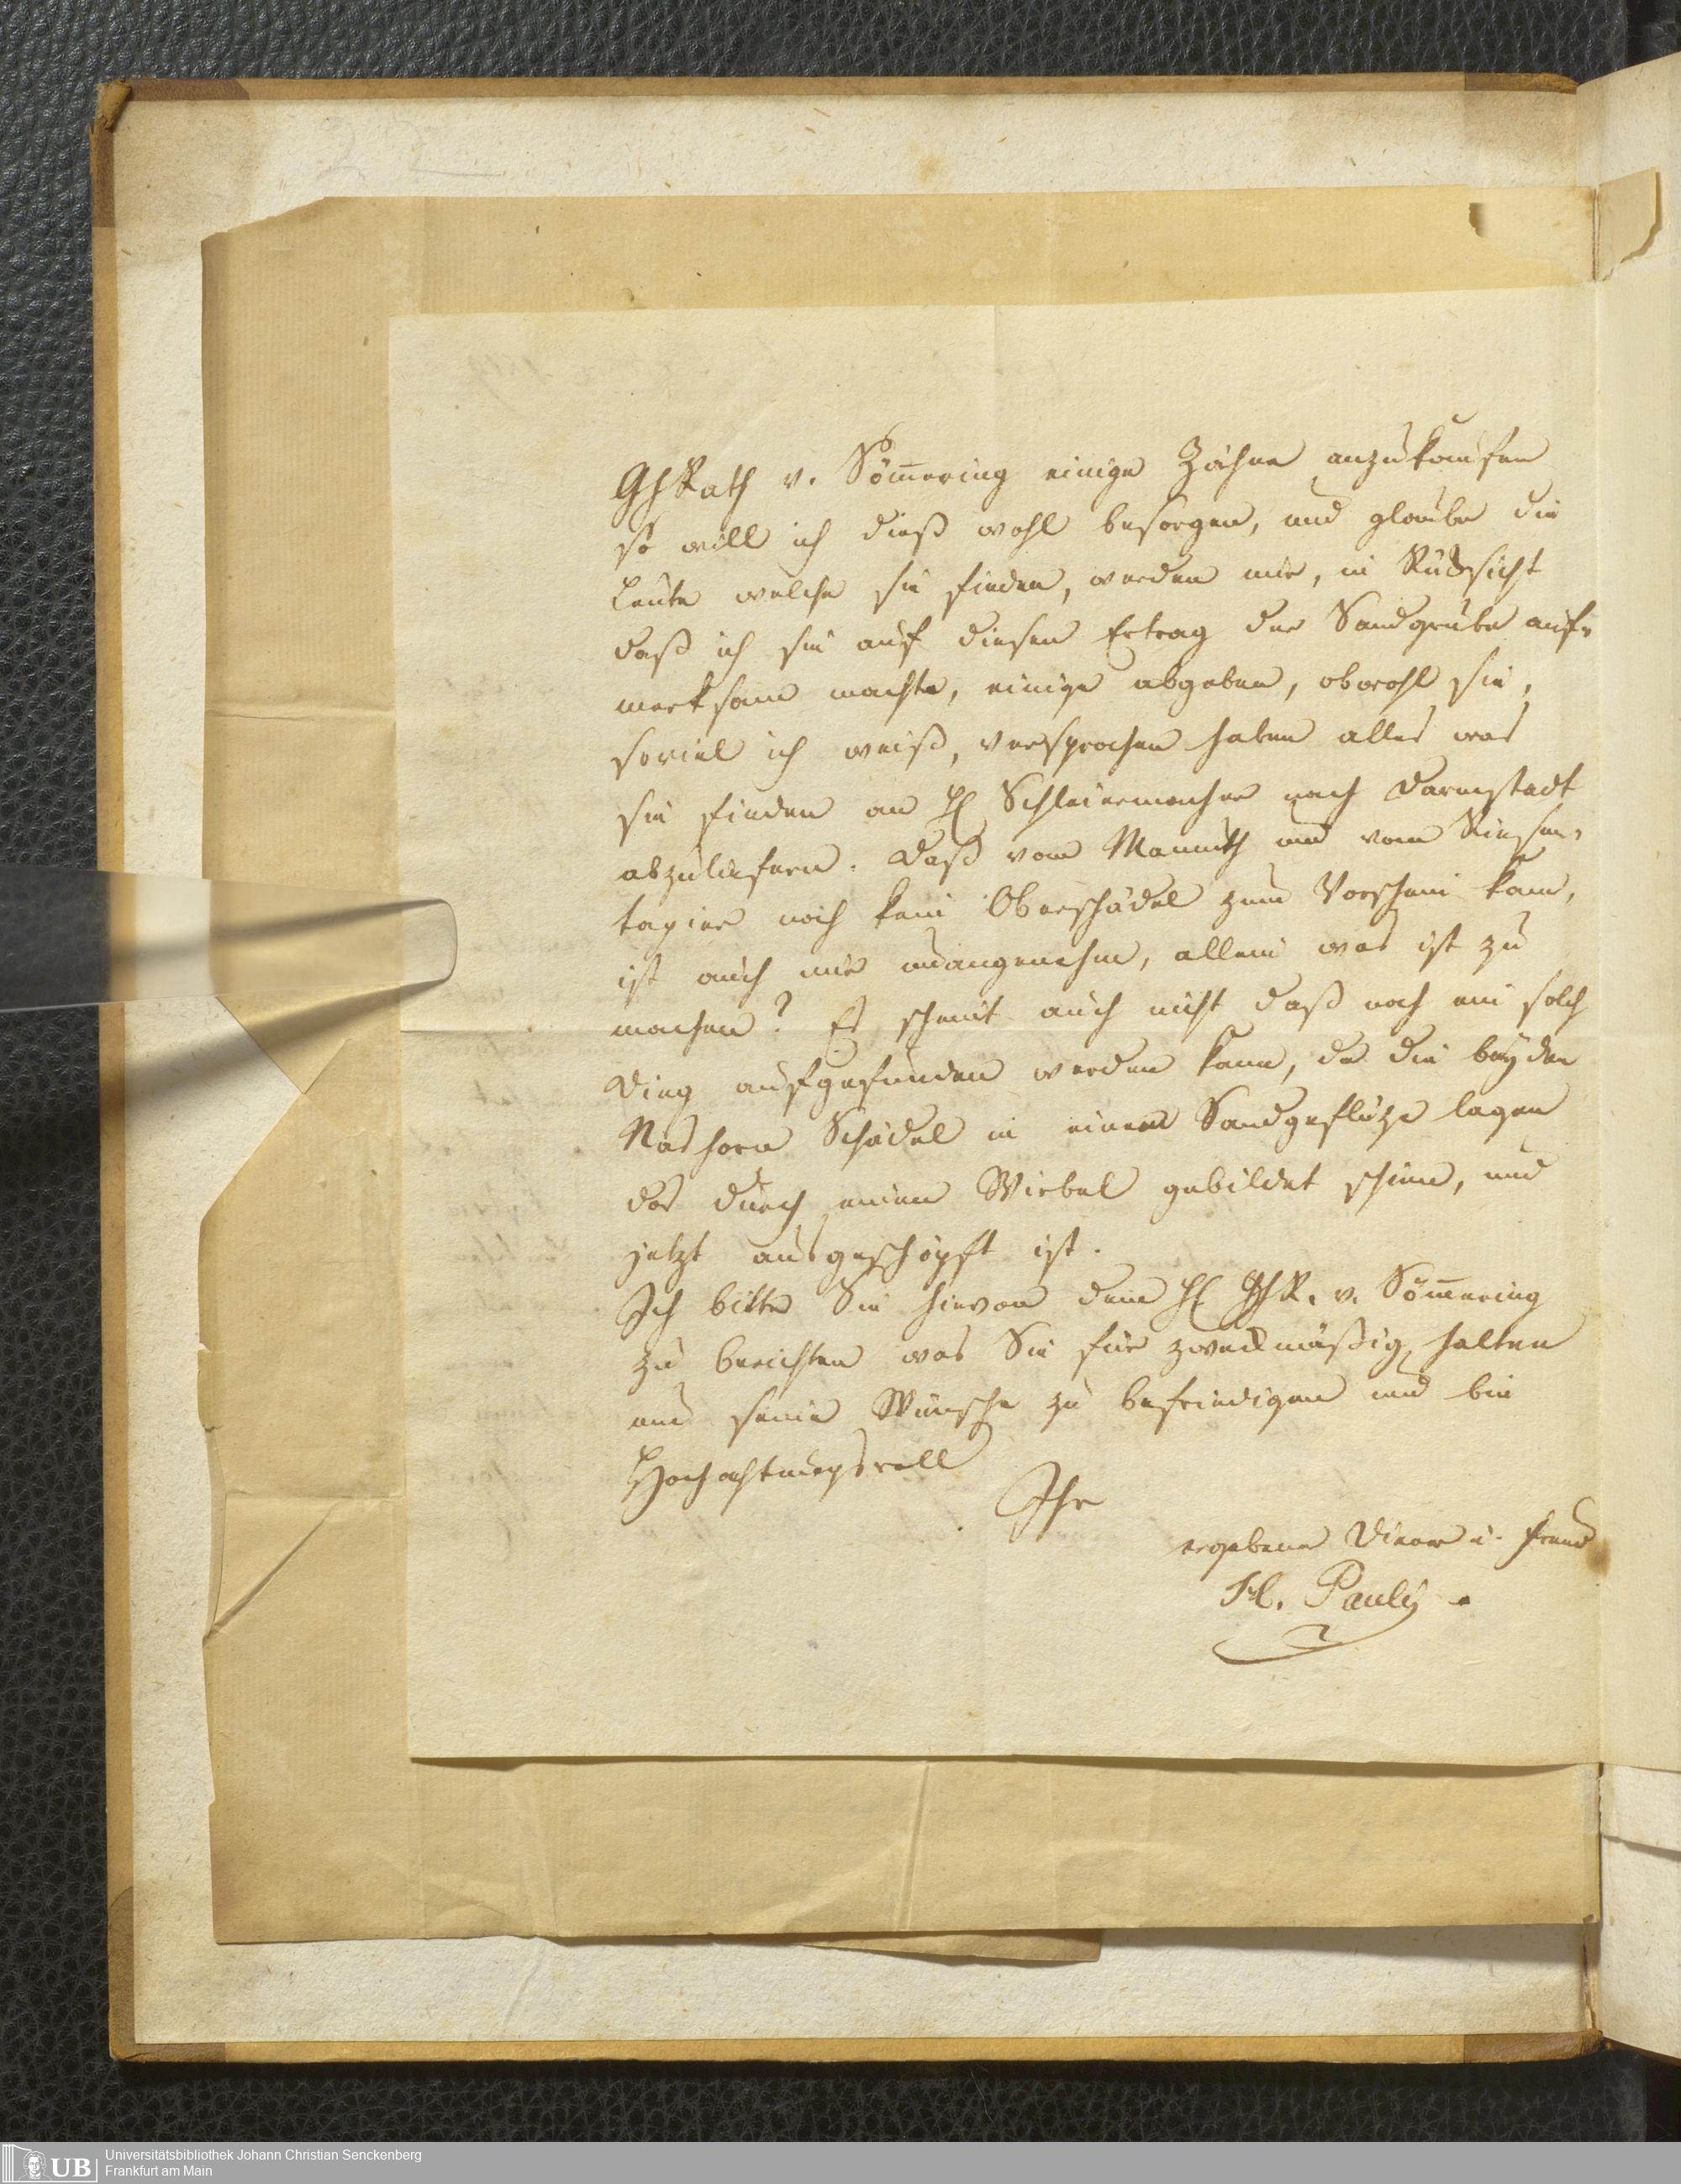 GhRath v. Söm̅ering einige Zähne anzukaufen
so will ich dieß wohl besorgen, und glaube die
Leute welche sie finden, werden mir, in Rücksicht
daß ich sie auf diesen Ertrag der Sandgrube auf-
merksam machte, einige abgeben, obwohl sie,
soviel ich weiß, versprochen haben alles was
sie finden an H Schleiermacher nach Darmstadt
abzuliefern. Daß vom Mammuth und vom Riesen-
tapier noch kein Oberschädel zum Vorschein kam,
ist auch mir unangenehm, allein was ist zu
machen? Es scheint auch nicht daß noch ein solch
Ding aufgefunden werden kann, da die beyden
Nashorn Schädel in einem Sandgeflötze lagen
das durch einen Wirbel gebildet schien, und
jetzt ausgeschöpft ist.
Ich bitte Sie hievon dem H GhR. v. Söm̅ering
zu berichten was Sie für zweckmäßig halten
um seine Wünsche zu befriedigen und bin
Hochachtungsvoll
Ihr
ergebener Diener u. Freund
Fl. Pauly
UB
Universitätsbibliothek Johann Christian Senckenberg
Frankfurt am Main